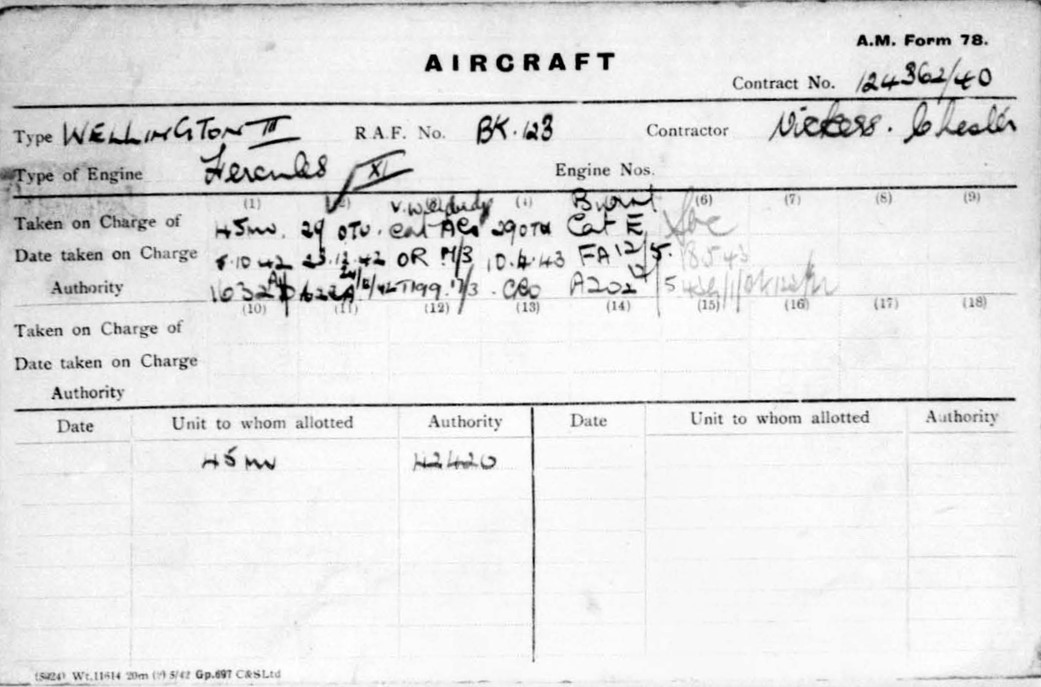 A.M. Form 78.
AIRCRAFT
Contract No. 124362/40
Type WELLINGTON III R.A.F. No. BK.123 Contractor Vickers. Chester
Type of Engine Hercules XI Engine Nos.
(1) (2) (4) Burnt (6) (7) (8) (9)
Taken on Charge of 45 MU. 29 OTU. Cat AC 29 OTU Cat E Soc
Date taken on Charge 8.10.42 23.12.42 OR 17/3 10.4.43 FA 12/5. 18.5.43
Authority T199 17/3 CRO A202 12/5
(10) (11) (12) (13) (14) (15) (16) (17) (18)
Taken on Charge of
Date taken on Charge
Authority
Date Unit to whom allotted Authority Date Unit to whom allotted Authority
45 MU 42420
Wt.11614 20m 5/42 Gp.697 C&SLtd